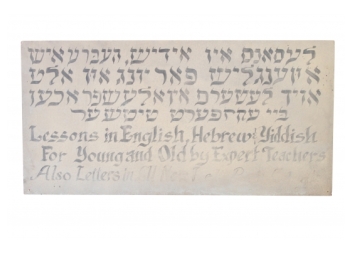 לעסאנס אין אידיש, העברעאיש
און ענגליש פאר יונג און אלט
אויך לעטערס אין אלע שפראכען
ביי עקספערט טיטשער
Lessons in English, Hebrew, Yiddish
For Young and Old by Expert Teachers
Also Letters in All